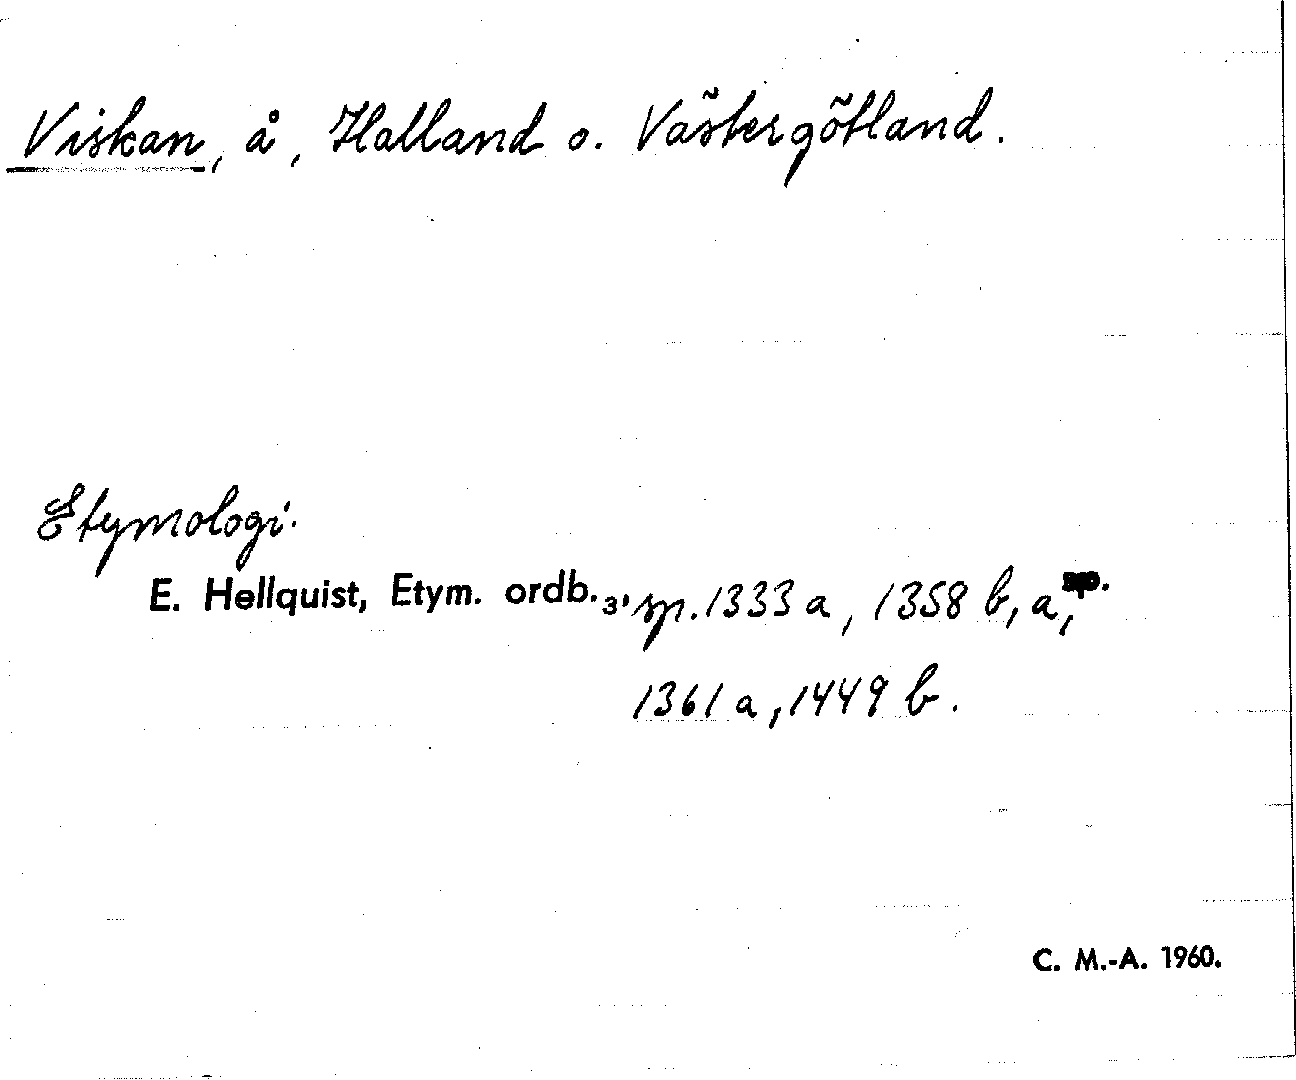 Viskan, å, Halland o. Västergötland.
Etymologi.
E. Hellquist, Etym. ordb.3, sp. 1333 a, 1358 b, a,
1361 a, 1449 b.
C. M.-A. 1960.